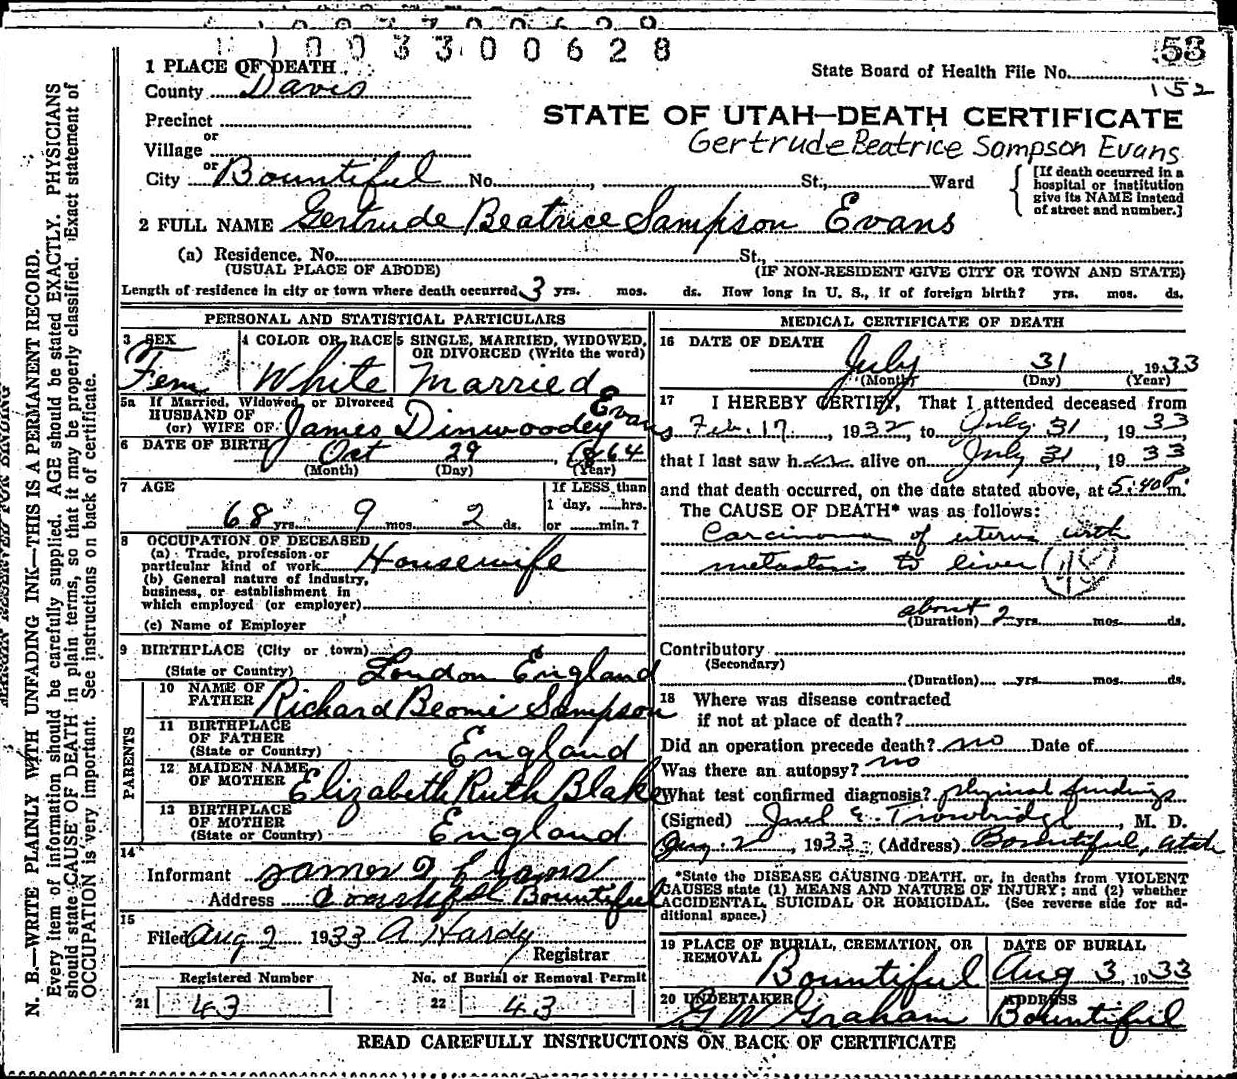 1003300628
53
1 PLACE OF DEATH
State Board of Health File No.
152
County Davis
STATE OF UTAH—DEATH CERTIFICATE
Precinct
or
Gertrude Beatrice Sampson Evans
Village
or
City Bountiful No. , St., Ward
[If death occurred in a
hospital or institution
give its NAME instead
of street and number.]
2 FULL NAME Gertrude Beatrice Sampson Evans
(a) Residence. No. St.,
(USUAL PLACE OF ABODE) (IF NON-RESIDENT GIVE CITY OR TOWN AND STATE)
Length of residence in city or town where death occurred 3 yrs. mos. ds. How long in U. S., if of foreign birth? yrs. mos. ds.
PERSONAL AND STATISTICAL PARTICULARS
3 SEX 4 COLOR OR RACE 5 SINGLE, MARRIED, WIDOWED,
OR DIVORCED (Write the word)
Fem White Married
5a If Married, Widowed, or Divorced
HUSBAND OF
(or) WIFE OF James Dinwoodey Evans
6 DATE OF BIRTH Oct 29, 1864
(Month) (Day) (Year)
7 AGE If LESS than
1 day, hrs.
68 yrs. 9 mos. 2 ds. or min.?
8 OCCUPATION OF DECEASED
(a) Trade, profession or
particular kind of work Housewife
(b) General nature of industry,
business, or establishment in
which employed (or employer)
(c) Name of Employer
9 BIRTHPLACE (City or town)
(State or Country) London England
PARENTS
10 NAME OF
FATHER Richard Beomie Sampson
11 BIRTHPLACE
OF FATHER
(State or Country) England
12 MAIDEN NAME
OF MOTHER Elizabeth Ruth Blake
13 BIRTHPLACE
OF MOTHER
(State or Country) England
14
Informant James D Evans
Address Bountiful
15
Filed Aug 2 1933 A Hardy
Registrar
Registered Number No. of Burial or Removal Permit
21 43 22 43
MEDICAL CERTIFICATE OF DEATH
16 DATE OF DEATH
July 31, 1933
(Month) (Day) (Year)
17 I HEREBY CERTIFY, That I attended deceased from
Feb. 17, 1932, to July 31, 1933
that I last saw her alive on July 31, 1933
and that death occurred, on the date stated above, at 5:40 P m.
The CAUSE OF DEATH* was as follows:
Carcinoma of uterus with
metastasis to liver 48
about
(Duration) 2 yrs. mos. ds.
Contributory
(Secondary)
(Duration) yrs. mos. ds.
18 Where was disease contracted
if not at place of death?
Did an operation precede death? no Date of
Was there an autopsy? no
What test confirmed diagnosis? physical findings
(Signed) E. Trowbridge, M. D.
Aug. 2, 1933 (Address) Bountiful, Utah
*State the DISEASE CAUSING DEATH, or, in deaths from VIOLENT
CAUSES state (1) MEANS AND NATURE OF INJURY; and (2) whether
ACCIDENTAL, SUICIDAL OR HOMICIDAL. (See reverse side for ad-
ditional space.)
19 PLACE OF BURIAL, CREMATION, OR
REMOVAL
Bountiful
DATE OF BURIAL
Aug 3, 1933
20 UNDERTAKER
G W Graham
ADDRESS
Bountiful
READ CAREFULLY INSTRUCTIONS ON BACK OF CERTIFICATE
MARGIN RESERVED FOR BINDING
N. B.—WRITE PLAINLY WITH UNFADING INK—THIS IS A PERMANENT RECORD.
Every item of information should be carefully supplied. AGE should be stated EXACTLY. PHYSICIANS
should state CAUSE OF DEATH in plain terms, so that it may be properly classified. Exact statement of
OCCUPATION is very important. See instructions on back of certificate.